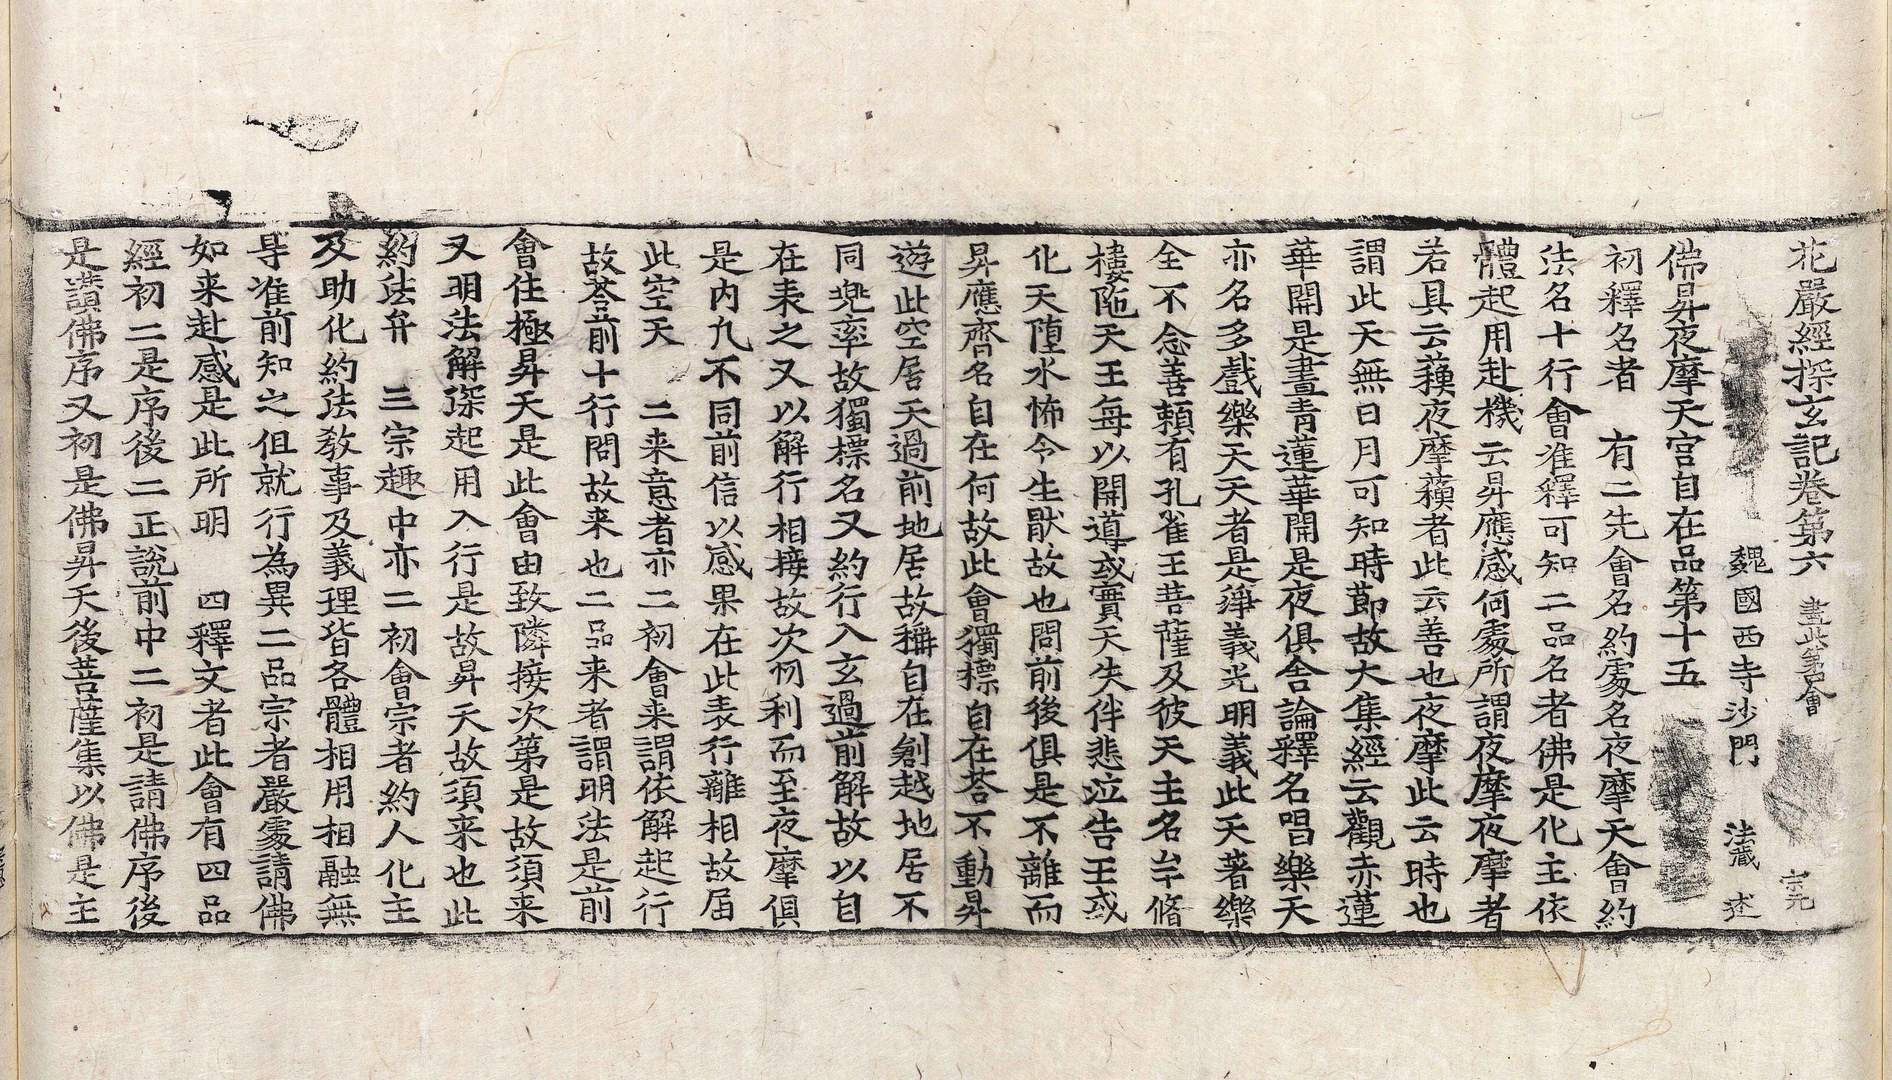 花嚴經探玄記卷第六 盡此第四會 完
魏國西寺沙門 法藏 述
佛昇夜摩天宮自在品第十五
初釋名者 有二先會名約處名夜摩天會約
法名十行會准釋可知二品名者佛是化主依
體起用赴機云昇應感何處所謂夜摩夜摩者
若具云蘓夜摩蘓者此云善也夜摩此云時也
謂此天無日月可知時節故大集經云觀赤蓮
華開是晝青蓮華開是夜俱舍論釋名唱樂天
亦名多戲樂天天者是淨義光明義此天著樂
全不念善賴有孔雀王菩薩及彼天主名牟脩
樓陁天王每以開導或實天失伴悲泣告王或
化天墮水怖令生猒故也問前後俱是不離而
昇應齊名自在何故此會獨標自在荅不動昇
遊此空居天過前地居故稱自在創越地居不
同兠率故獨標名又約行入玄過前解故以自
在表之又以解行相接故次忉利而至夜摩俱
是内凡不同前信以感果在此表行離相故居
此空天 二来意者亦二初會来謂依解起行
故荅前十行問故来也二品来者謂明法是前
會住極昇天是此會由致隣接次第是故須来
又明法解深起用入行是故昇天故須来也此
約法弁 三宗趣中亦二初會宗者約人化主
及助化約法教事及義理皆各體相用相融無
㝵准前知之但就行為異二品宗者嚴處請佛
如来赴感是此所明 四釋文者此會有四品
經初二是序後二正說前中二初是請佛序後
是讚佛序又初是佛昇天後菩薩集以佛是主